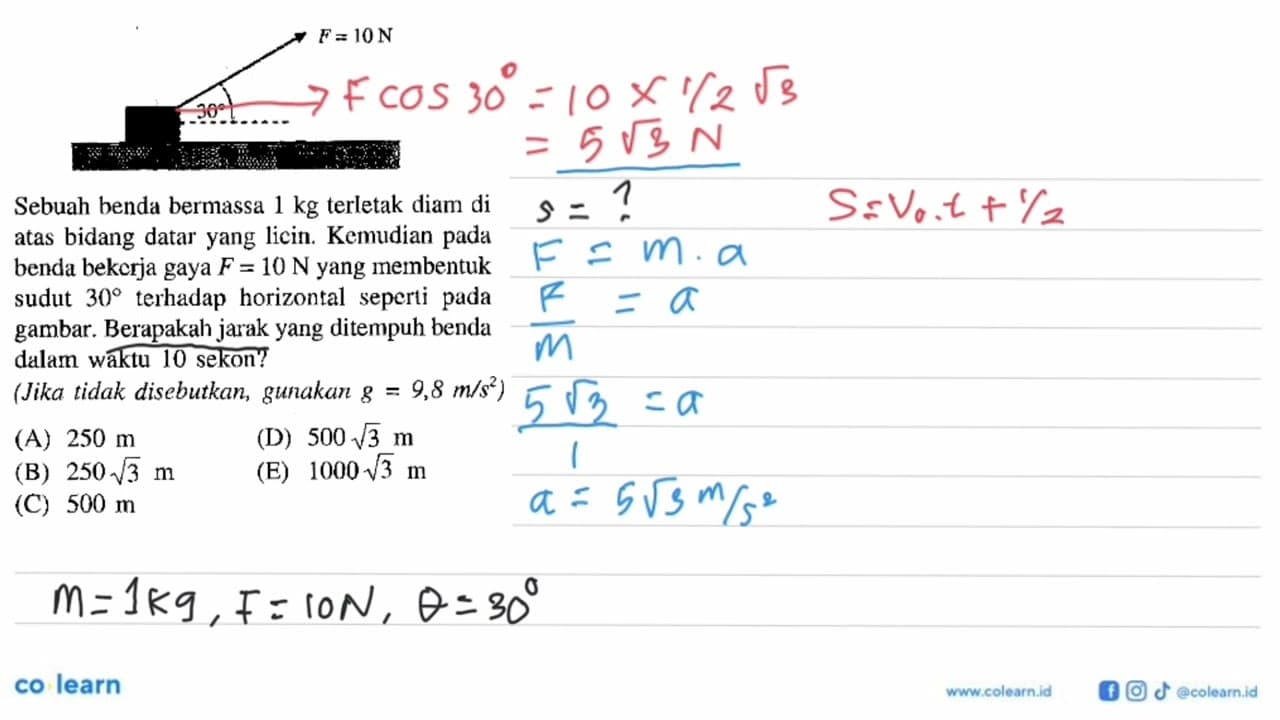 F = 10 N
30°
F cos 30° = 10 × 1/2 √3
= 5 √3 N
Sebuah benda bermassa 1 kg terletak diam di
atas bidang datar yang licin. Kemudian pada
benda bekerja gaya F = 10 N yang membentuk
sudut 30° terhadap horizontal seperti pada
gambar. Berapakah jarak yang ditempuh benda
dalam waktu 10 sekon?
(Jika tidak disebutkan, gunakan g = 9,8 m/s²)
(A) 250 m
(B) 250√3 m
(C) 500 m
(D) 500√3 m
(E) 1000√3 m
s = ?
F = m . a
F/m = a
5√3/1 = a
a = 5√3 m/s²
S = V₀ . t + 1/2
m = 1 kg, F = 10 N, θ = 30°
co learn
www.colearn.id
@colearn.id